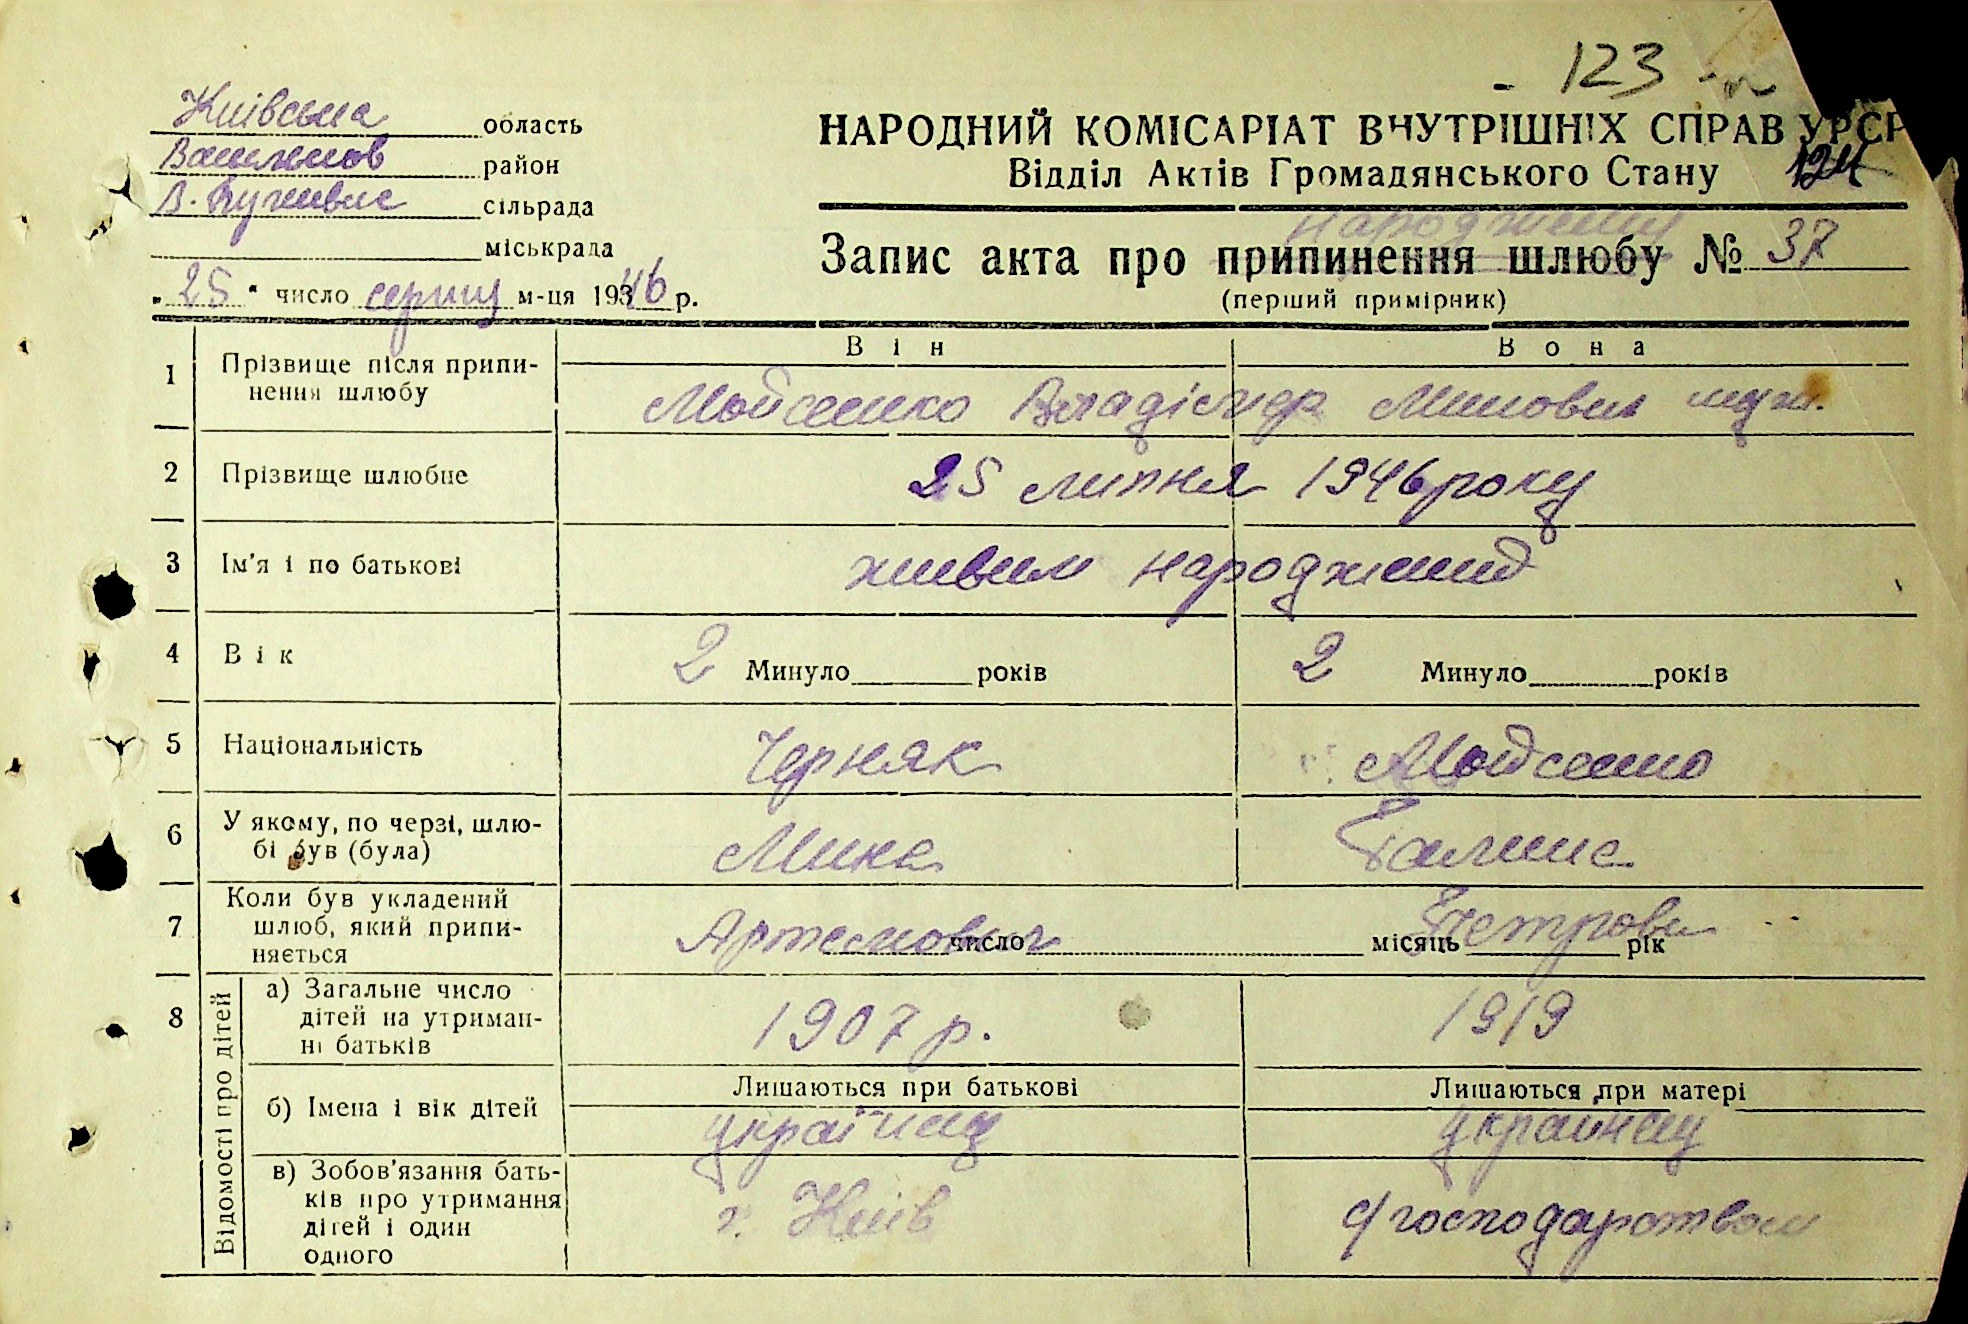 123
Київська область
район
сільрада
міськрада
"25" число серпня м-ця 1946 р.
НАРОДНИЙ КОМІСАРІАТ ВНУТРІШНІХ СПРАВ УРСР
124
Відділ Актів Громадянського Стану
народження
Запис акта про припинення шлюбу № 37
(перший примірник)
Він Вона
1 Прізвище після припи-
нення шлюбу
Мойсенко Владімір Минович муж.
2 Прізвище шлюбне 25 липня 1946 року
3 Ім'я і по батькові живим народжений
4 Вік 2 Минуло років 2 Минуло років
5 Національність Черняк Мойсенко
6 У якому, по черзі, шлю-
бі був (була)
Мина Галина
7 Коли був укладений
шлюб, який припи-
няється
Артемович число місяць Петровн рік
8 Відомості про дітей
а) Загальне число
дітей на утриман-
ні батьків
1907 р. 1919
б) Імена і вік дітей
Лишаються при батькові Лишаються при матері
українец украинец
в) Зобов'язання бать-
ків про утримання
дітей і один
одного
г. Київ с/господарством